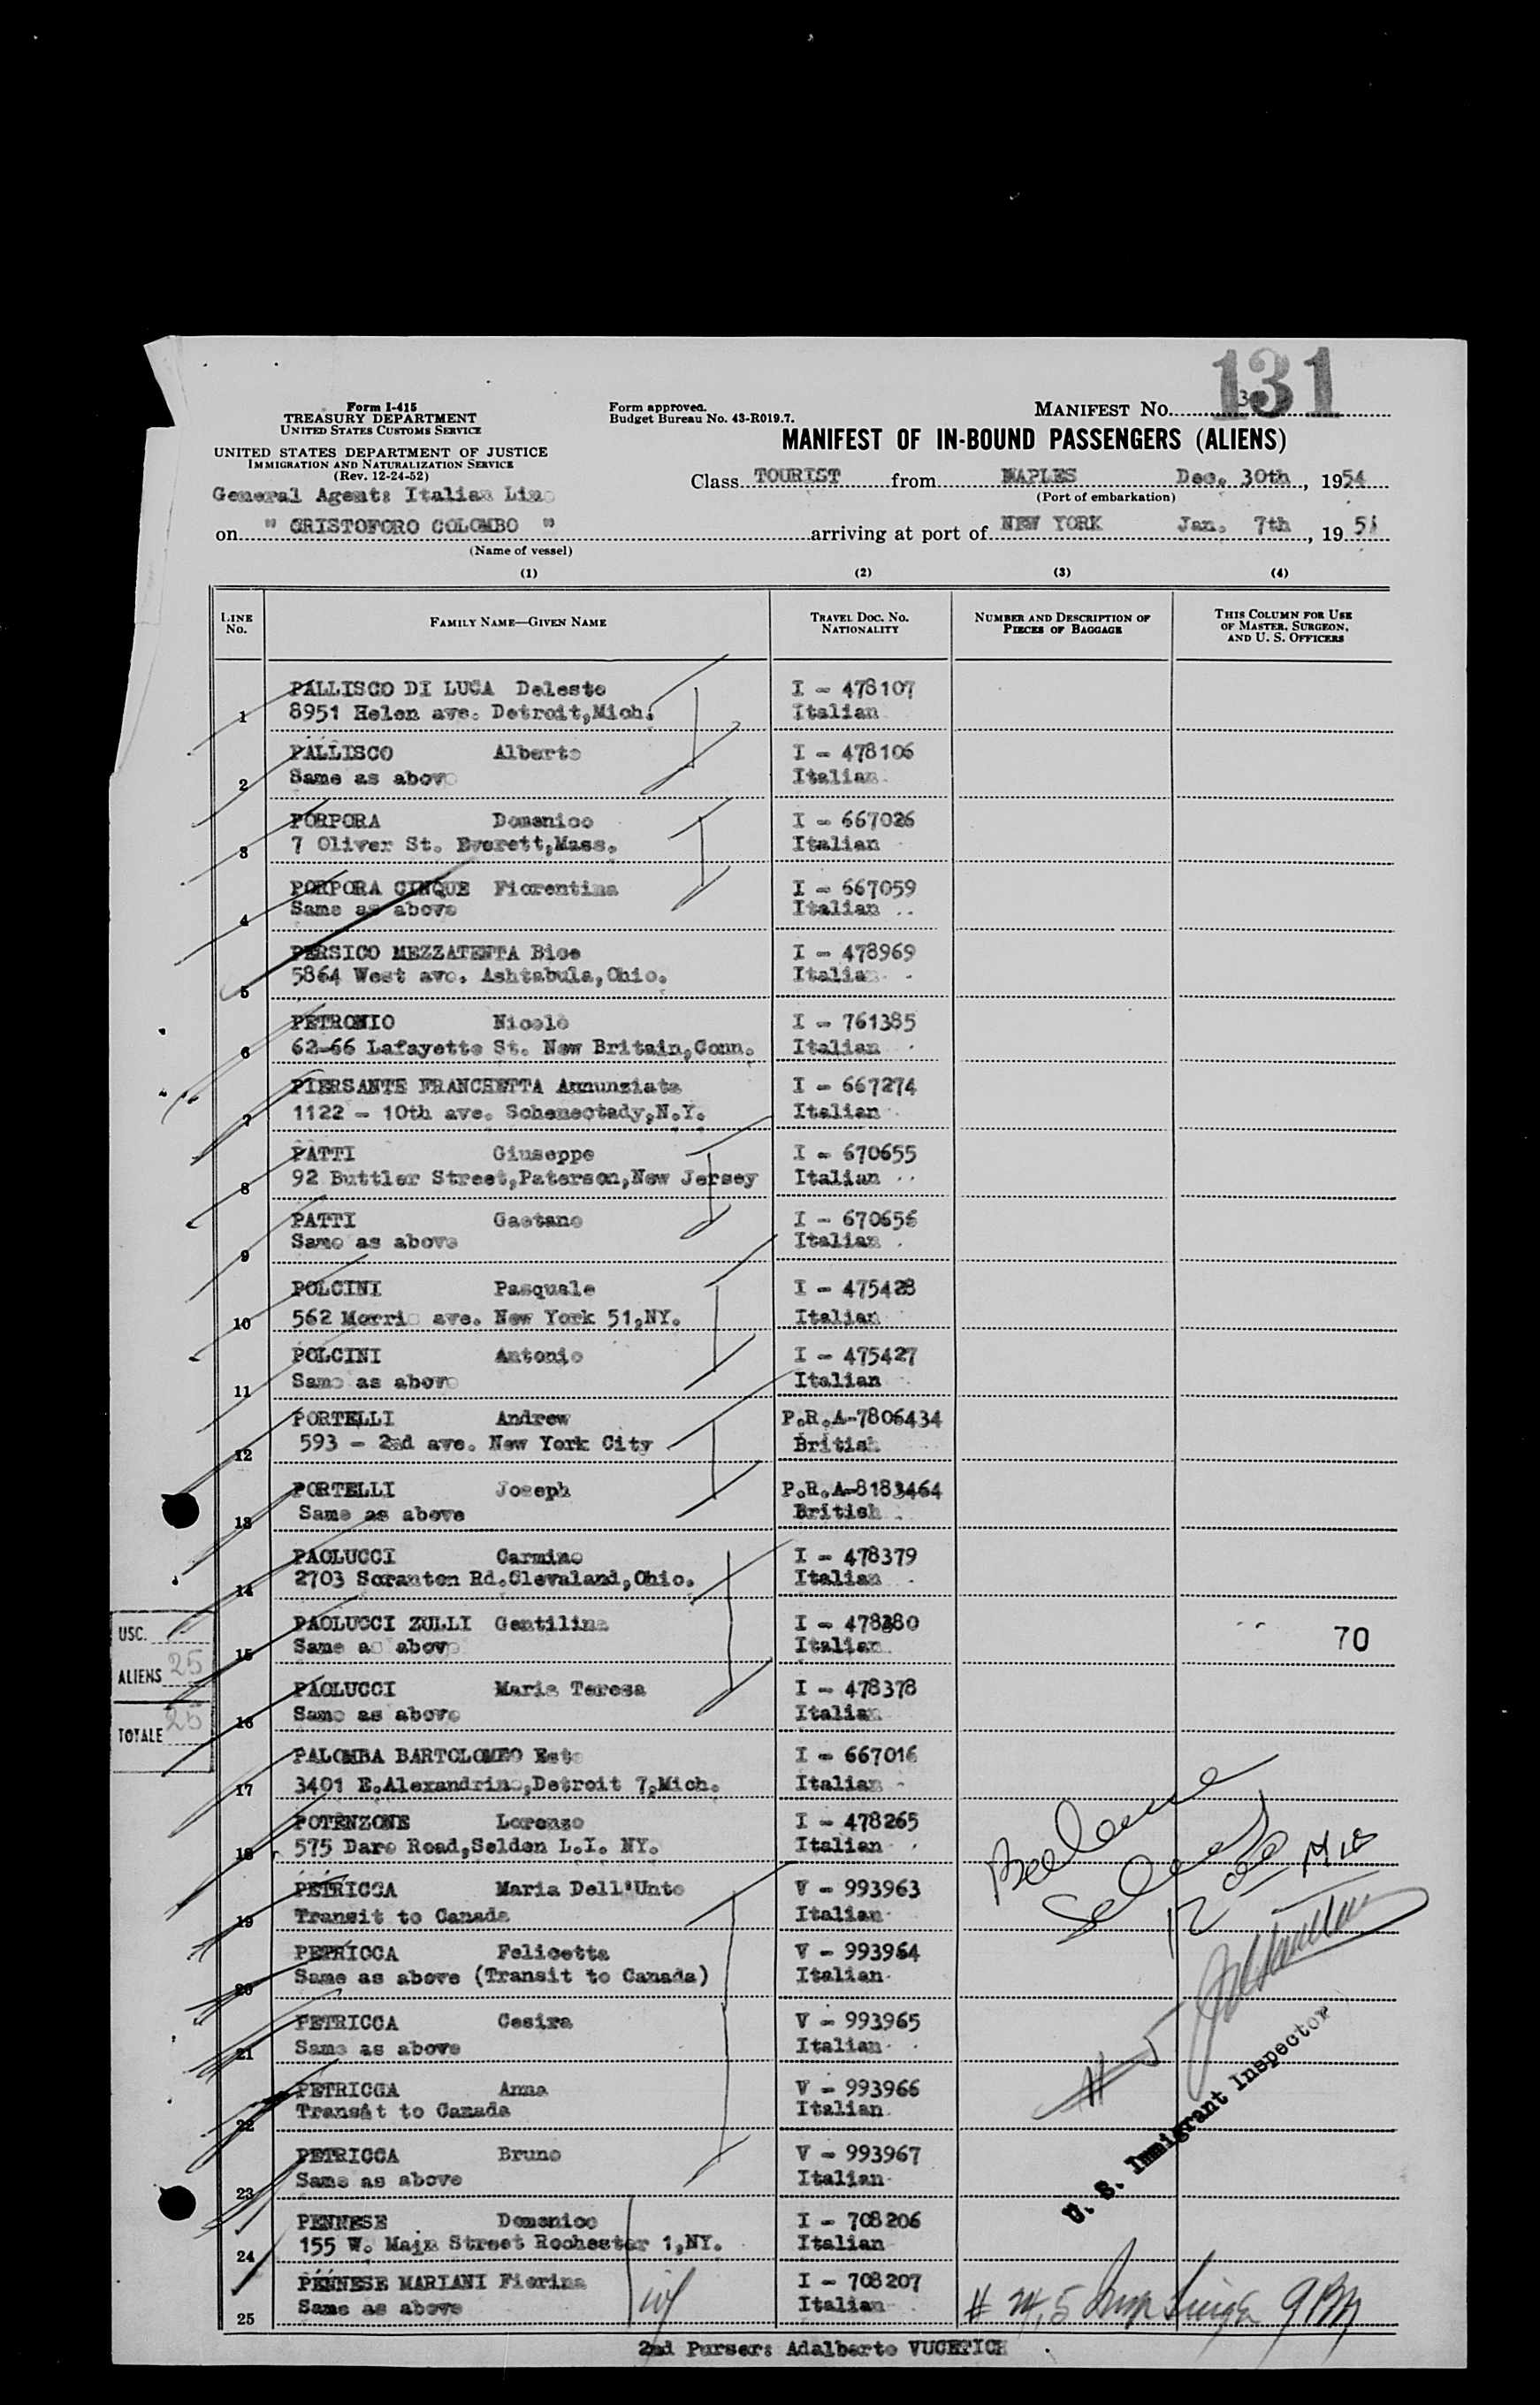 131
Form I-415
TREASURY DEPARTMENT
UNITED STATES CUSTOMS SERVICE
UNITED STATES DEPARTMENT OF JUSTICE
IMMIGRATION AND NATURALIZATION SERVICE
(Rev. 12-24-52)
General Agent: Italian Line
Form approved.
Budget Bureau No. 43-R019.7.
MANIFEST NO.
MANIFEST OF IN-BOUND PASSENGERS (ALIENS)
Class TOURIST from NAPLES Dec. 30th, 1954
(Port of embarkation)
on " CRISTOFORO COLOMBO " arriving at port of NEW YORK Jan. 7th, 19
(Name of vessel)
(1) (2) (3) (4)
LINE NO. FAMILY NAME—GIVEN NAME TRAVEL DOC. NO. NATIONALITY NUMBER AND DESCRIPTION OF PIECES OF BAGGAGE THIS COLUMN FOR USE OF MASTER, SURGEON, AND U. S. OFFICERS
PALLISCO DI LUCA Deleste I - 478107
1 8951 Helen ave. Detroit,Mich. Italian
PALLISCO Alberto I - 478106
2 Same as above Italian
PORPORA Domenico I - 667026
3 7 Oliver St. Everett,Mass. Italian
PORPORA CINQUE Fiorentina I - 667059
4 Same as above Italian
PERSICO MEZZATENTA Bice I - 478969
5 5864 West ave. Ashtabula,Ohio. Italian
PETRONIO Nicolò I - 761385
6 62-66 Lafayette St. New Britain,Conn. Italian
PIERSANTE FRANCHETTA Annunziata I - 667274
7 1122 - 10th ave. Schenectady,N.Y. Italian
PATTI Giuseppe I - 670655
8 92 Buttler Street,Paterson,New Jersey Italian
PATTI Gaetano I - 670656
9 Same as above Italian
POLCINI Pasquale I - 475428
10 562 Morris ave. New York 51,NY. Italian
POLCINI Antonio I - 475427
11 Same as above Italian
PORTELLI Andrew P.R.A-7806434
12 593 - 2nd ave. New York City British
PORTELLI Joseph P.R.A-8183464
13 Same as above British
PAOLUCCI Carmino I - 478379
14 2703 Scranton Rd.Clevaland,Ohio. Italian
PAOLUCCI ZULLI Gentilina I - 478380
15 Same as above Italian 70
PAOLUCCI Maria Teresa I - 478378
16 Same as above Italian
PALOMBA BARTOLOMEO I - 667016
17 3401 E.Alexandrine,Detroit 7,Mich. Italian
POTENZONE Lorenzo I - 478265
18 575 Dare Road,Selden L.I. NY. Italian
PETRICCA Maria Dell'Unto V - 993963
19 Transit to Canada Italian
PETRICCA Felicetta V - 993964
20 Same as above (Transit to Canada) Italian
PETRICCA Cesira V - 993965
21 Same as above Italian
PETRICCA Anna V - 993966
22 Transit to Canada Italian
PETRICCA Bruno V - 993967
23 Same as above Italian
PENNESE Domenico I - 708206
24 155 W. Main Street Rochester 1,NY. Italian
PENNESE MARIANI Fiorina I - 708207
25 Same as above Italian
2nd Purser: Adalberto VUCETICH
USC.
ALIENS 25
TOTALE 25
U. S. Immigrant Inspector